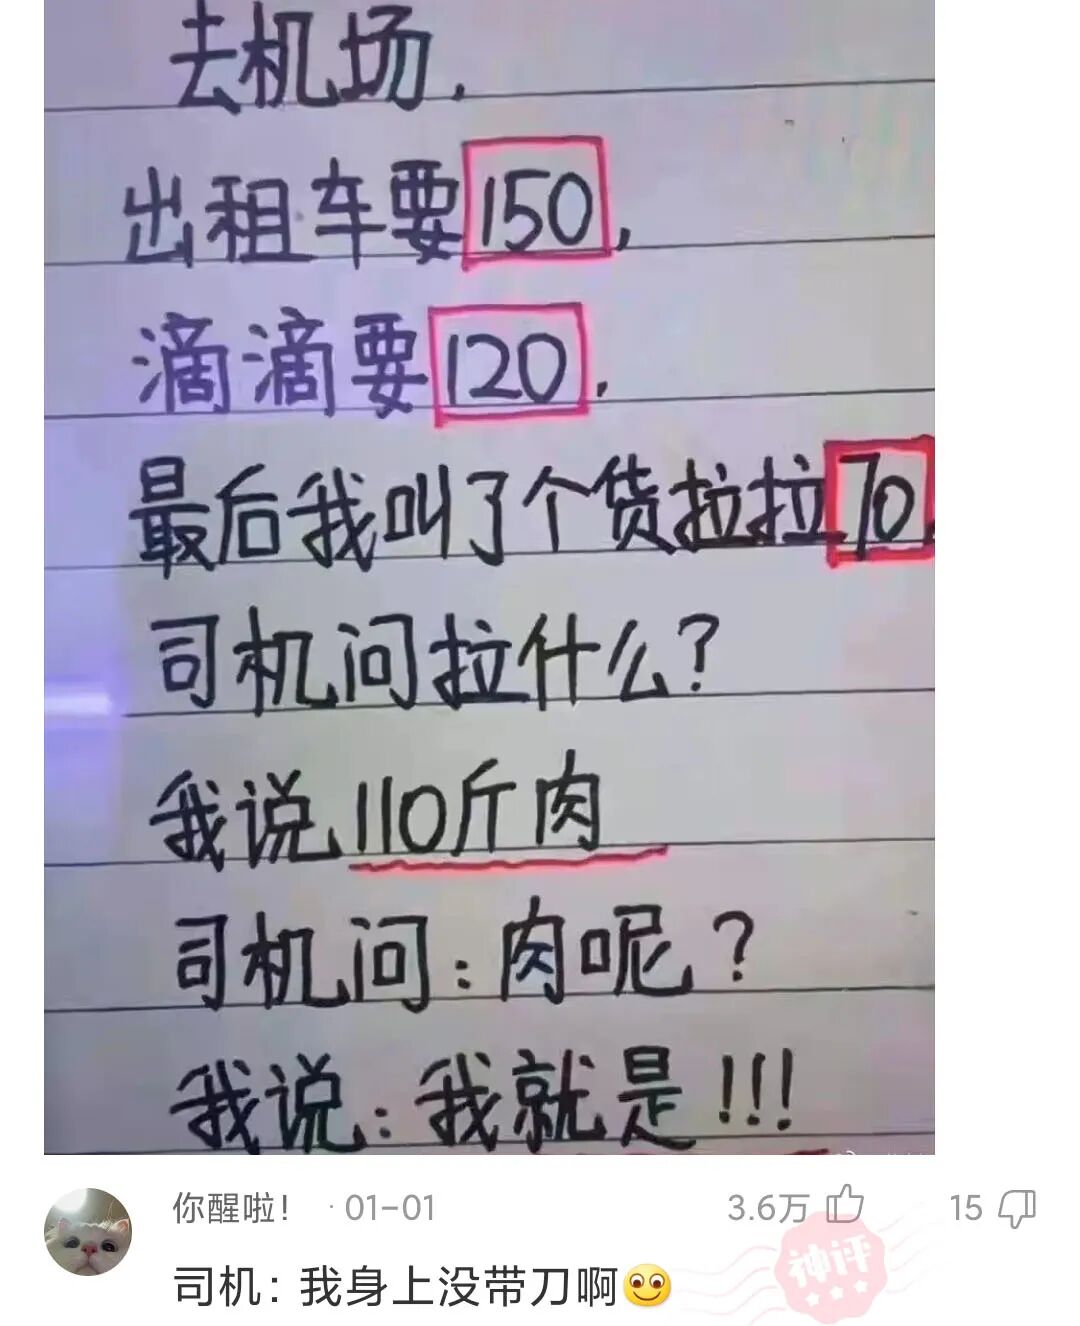 去机场.
出租车要150,
滴滴要120.
最后我叫了个货拉拉70.
司机问拉什么?
我说110斤肉
司机问:肉呢?
我说:我就是!!!
你醒啦! ·01-01
3.6万 15
司机:我身上没带刀啊
神评